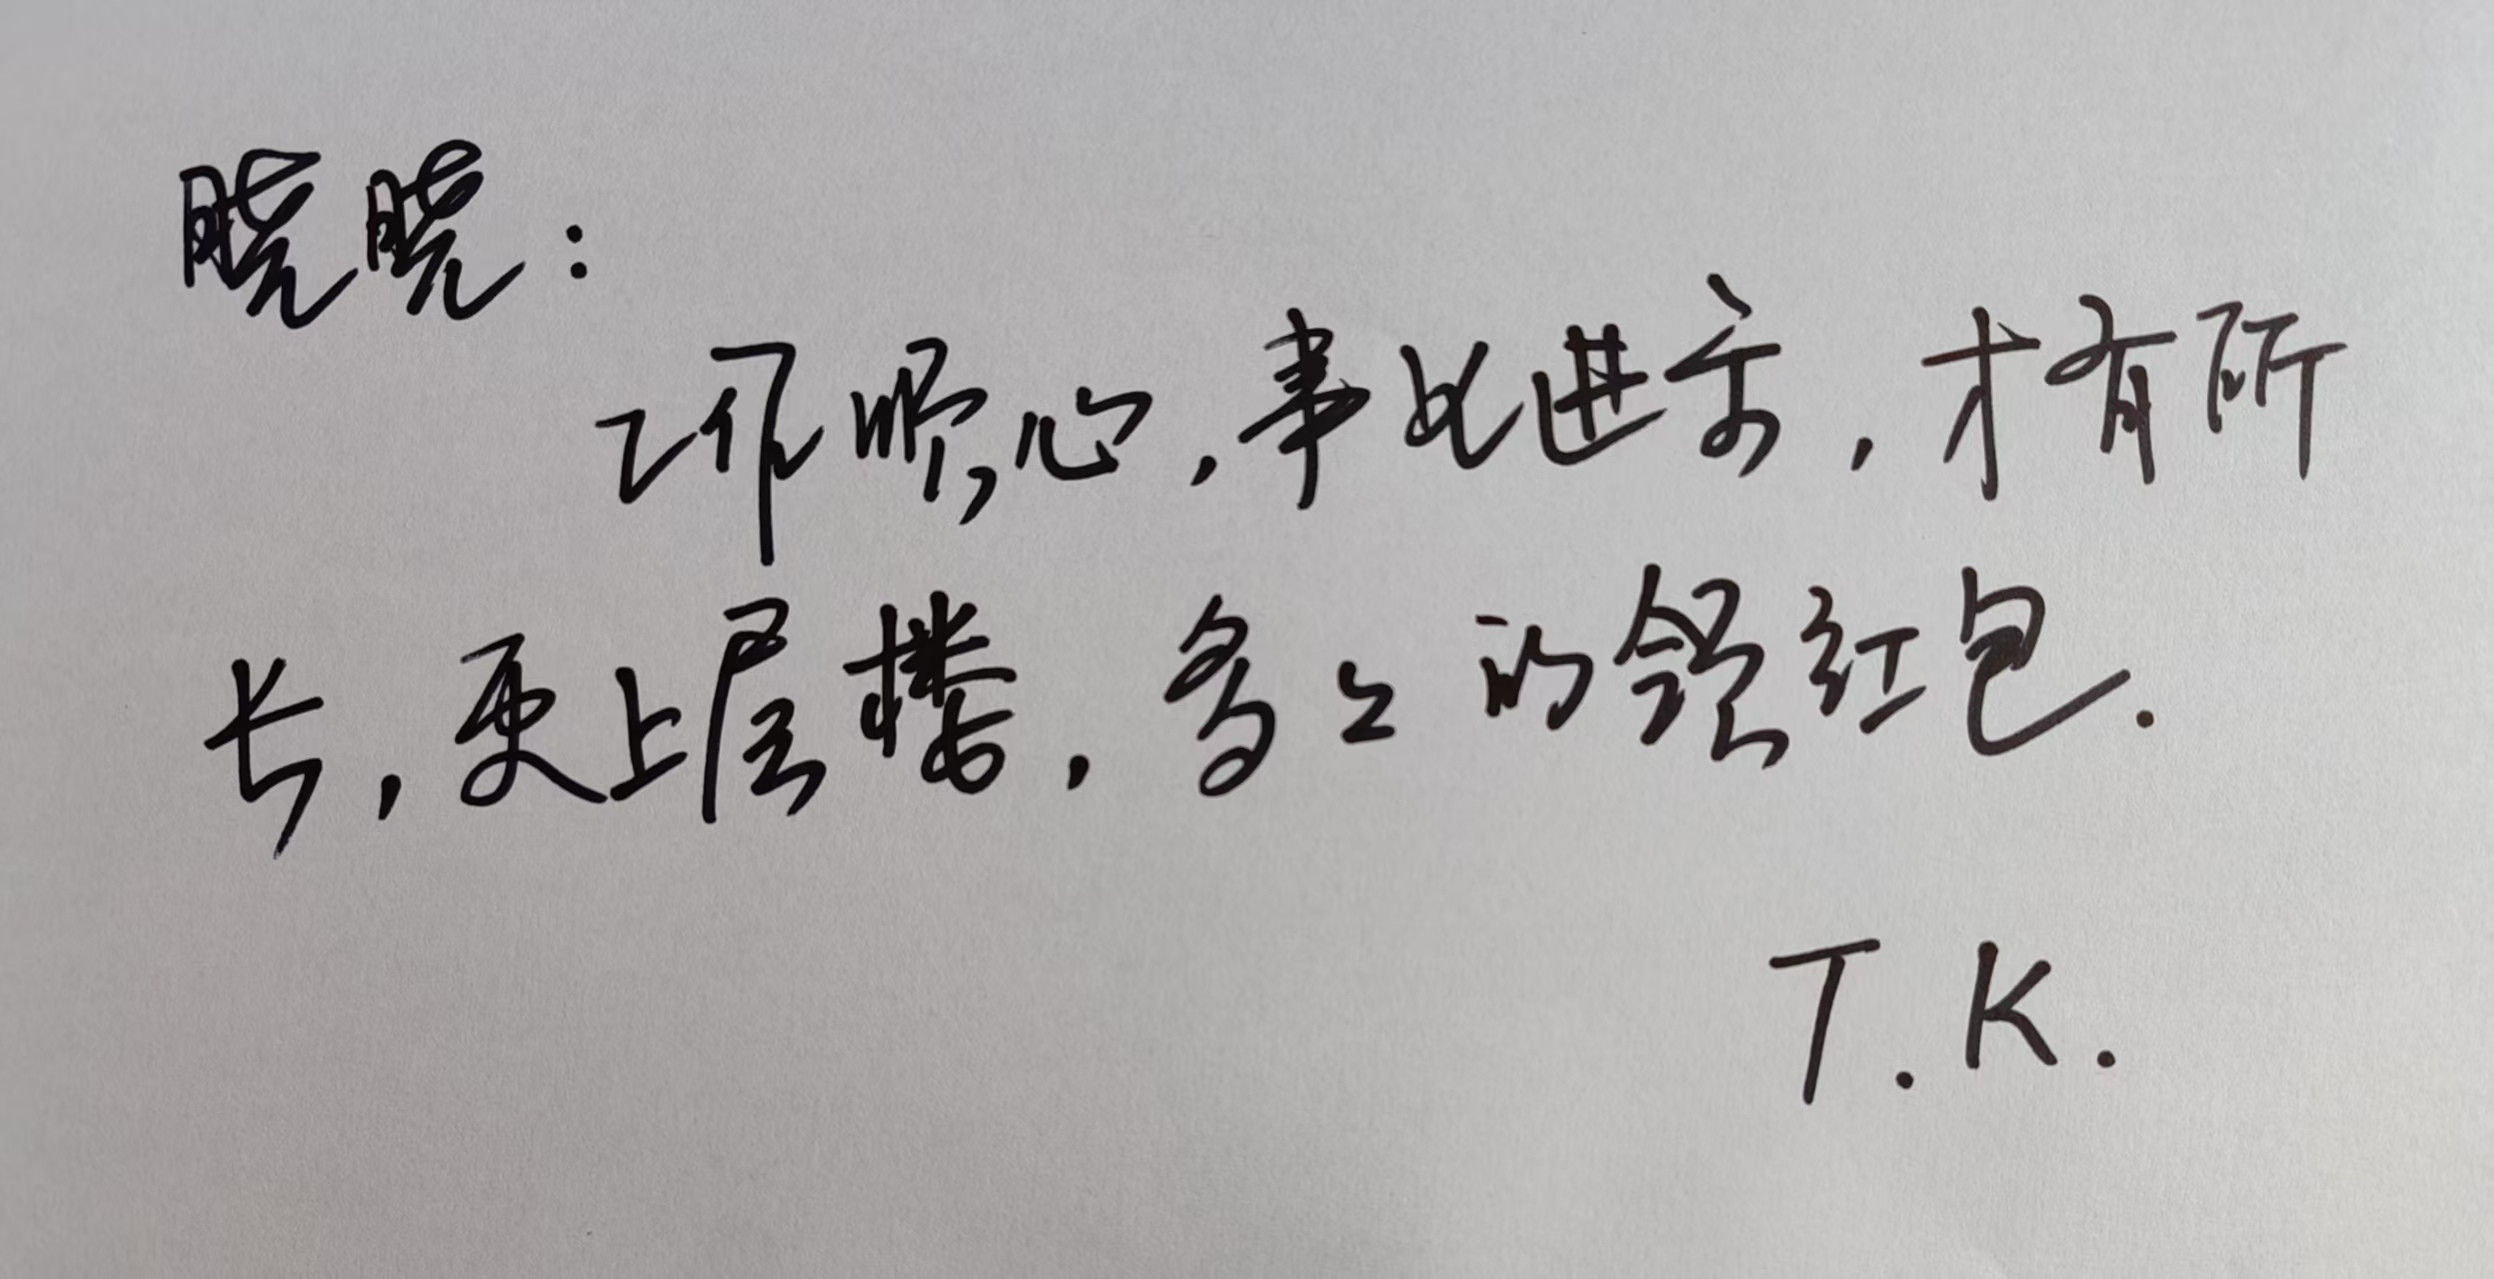 晓晓:
工作顺心,事业进步,才有所
长,更上层楼,多多的领红包.
T.K.